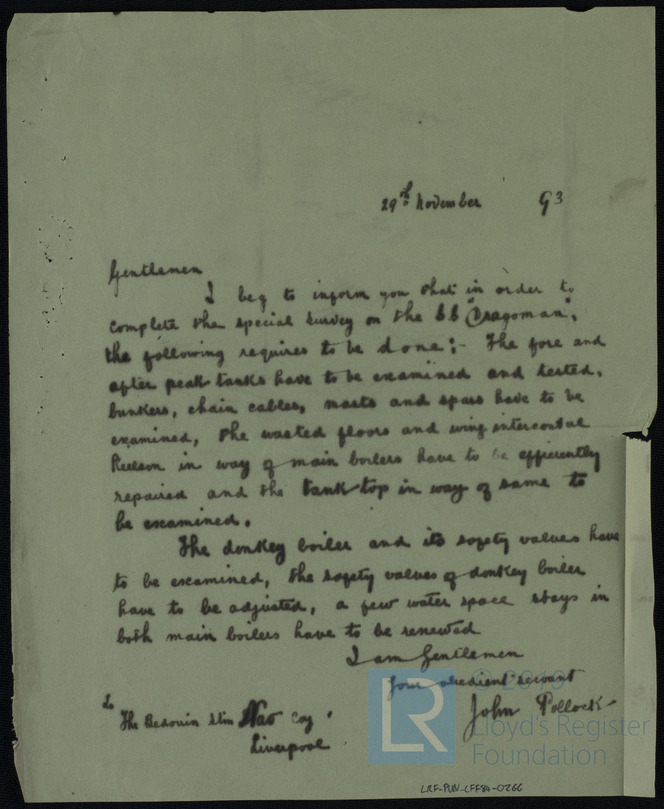 29th November 93
Gentlemen
I beg to inform you that in order to
complete the special survey on the SS "Dragoman",
the following requires to be done:- The fore and
after peak tanks have to be examined and tested,
bunkers, chain cables, masts and spars have to be
examined, the wasted floors and wing intercostal
Keelson in way of main boilers have to be efficiently
repaired and the tank top in way of same to
be examined.
The donkey boiler and its safety valves have
to be examined, the safety valves of donkey boiler
have to be adjusted, a few water space stays in
both main boilers have to be renewed
I am Gentlemen
Your obedient servant
John Pollock
To
The Bedouin Stm Nav Coy
Liverpool
LR
© 2019
Lloyd's Register
Foundation
LRF-PUN-CFF84-0266